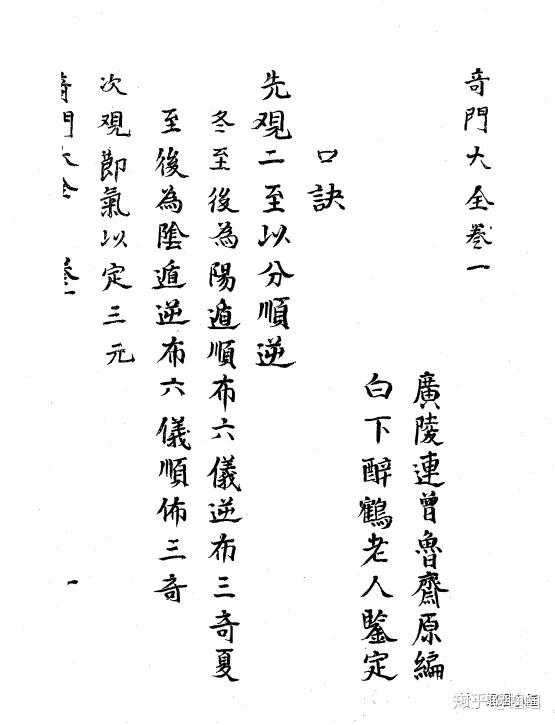 奇門大全卷一
廣陵連曾魯齋原編
白下醉鶴老人鑒定
口訣
先观二至以分順逆
冬至後為陽遁順布六儀逆布三奇夏
至後為陰遁逆布六儀順佈三奇
次观節氣以定三元
奇門大全 卷一 一
知乎